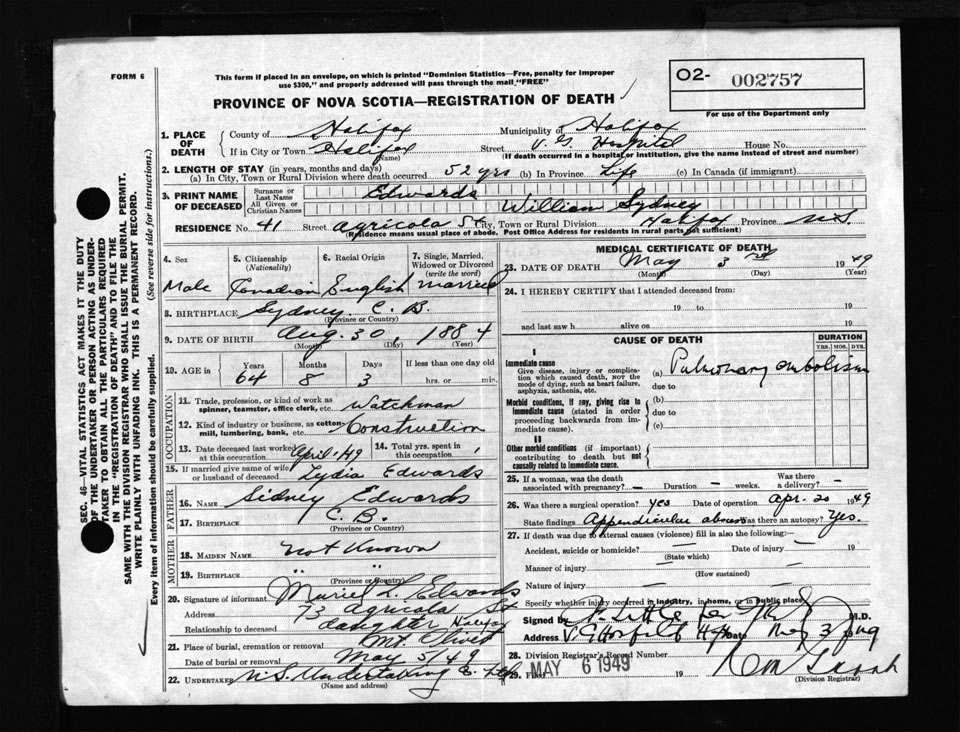 FORM 6
This form if placed in an envelope, on which is printed "Dominion Statistics—Free, penalty for improper
use $300," and properly addressed will pass through the mail "FREE"
O2- 002757
For use of the Department only
PROVINCE OF NOVA SCOTIA—REGISTRATION OF DEATH
1. PLACE OF DEATH
County of Halifax Municipality of Halifax
If in City or Town Halifax (Name) Street V. G. Hospital House No.
(If death occurred in a hospital or institution, give the name instead of street and number)
2. LENGTH OF STAY (in years, months and days)
(a) In City, Town or Rural Division where death occurred 52 yrs (b) In Province Life (c) In Canada (if immigrant)
3. PRINT NAME OF DECEASED
Surname or Last Name Edwards
All Given or Christian Names William Sydney
RESIDENCE No. 41 Street Agricola St City, Town or Rural Division Halifax Province N.S.
(Residence means usual place of abode. Post Office Address for residents in rural parts not sufficient)
4. Sex
Male
5. Citizenship (Nationality)
Canadian
6. Racial Origin
English
7. Single, Married, Widowed or Divorced (write the word)
married
8. BIRTHPLACE Sydney C. B.
(Province or Country)
9. DATE OF BIRTH Aug. 30, 1884
(Month) (Day) (Year)
10. AGE in Years Months Days If less than one day old
64 8 3 hrs. or min.
OCCUPATION
11. Trade, profession, or kind of work as spinner, teamster, office clerk, etc. Watchman
12. Kind of industry or business, as cotton-mill, lumbering, bank, etc. Construction
13. Date deceased last worked at this occupation April '49
14. Total yrs. spent in this occupation
15. If married give name of wife or husband of deceased Lydia Edwards
FATHER
16. Name Sidney Edwards
17. Birthplace C. B.
(Province or Country)
MOTHER
18. Maiden Name Not Known
19. Birthplace " "
(Province or Country)
20. Signature of informant Muriel L. Edwards
Address 73 Agricola St Halifax
Relationship to deceased daughter
21. Place of burial, cremation or removal Mt. Olivet
Date of burial or removal May 5/49
22. Undertaker N.S. Undertaking Co. Ltd
(Name and address)
MEDICAL CERTIFICATE OF DEATH
23. DATE OF DEATH May 3rd 1949
(Month) (Day) (Year)
24. I HEREBY CERTIFY that I attended deceased from:
19 to 19
and last saw h alive on 19
CAUSE OF DEATH
DURATION
YRS. MOS. DYS.
I
Immediate cause
Give disease, injury or complication which caused death, NOT the mode of dying, such as heart failure, asphyxia, asthenia, etc.
(a) Pulmonary embolism
due to
Morbid conditions, if any, giving rise to immediate cause (stated in order proceeding backwards from immediate cause).
(b)
due to
(c)
II
Other morbid conditions (if important) contributing to death but not causally related to immediate cause.
25. If a woman, was the death associated with pregnancy? — Duration — weeks. Was there a delivery? —
26. Was there a surgical operation? yes Date of operation Apr. 20 1949
State findings Appendicular abscess Was there an autopsy? Yes.
27. If death was due to external causes (violence) fill in also the following:—
Accident, suicide or homicide? Date of injury 19
(State which)
Manner of injury
(How sustained)
Nature of injury
Specify whether injury occurred in industry, in home, or in public place
Signed by M.D.
Address V G Hospital Hfx Date May 3 1949
28. Division Registrar's Record Number
29. Filed MAY 6 1949 19
(Division Registrar)
SEC. 46—VITAL STATISTICS ACT MAKES IT THE DUTY
OF THE UNDERTAKER OR PERSON ACTING AS UNDER-
TAKER TO OBTAIN ALL THE PARTICULARS REQUIRED
IN THE "REGISTRATION OF DEATH" AND TO FILE THE
SAME WITH THE DIVISION REGISTRAR WHO SHALL ISSUE THE BURIAL PERMIT.
WRITE PLAINLY WITH UNFADING INK. THIS IS A PERMANENT RECORD.
Every item of information should be carefully supplied. (See reverse side for instructions.)